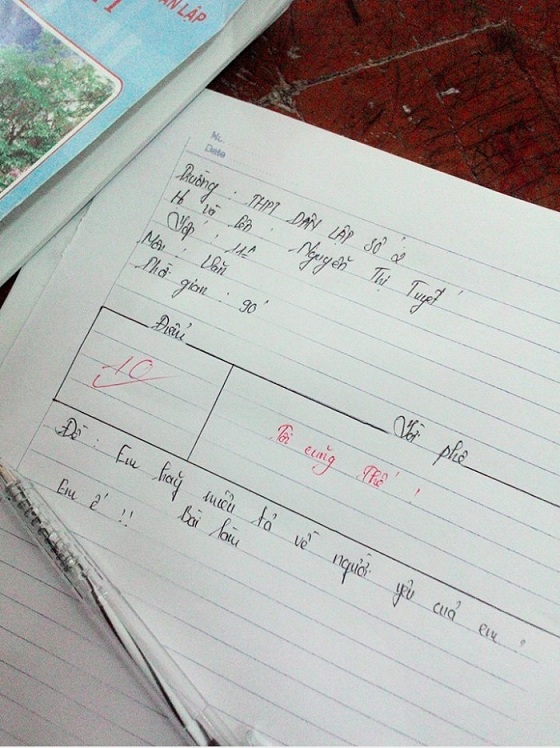 ÂN LẬP
No.
Date
Trường : THPT DÂN LẬP SỐ 2
Họ và tên : Nguyễn Thị Tuyết
Lớp : 11E
Môn : Văn
Thời gian : 90'
Điểm
Lời phê
10
Tôi cũng thế !
Đề : Em hãy miêu tả về người yêu của em ?
Bài làm
Em ế !!